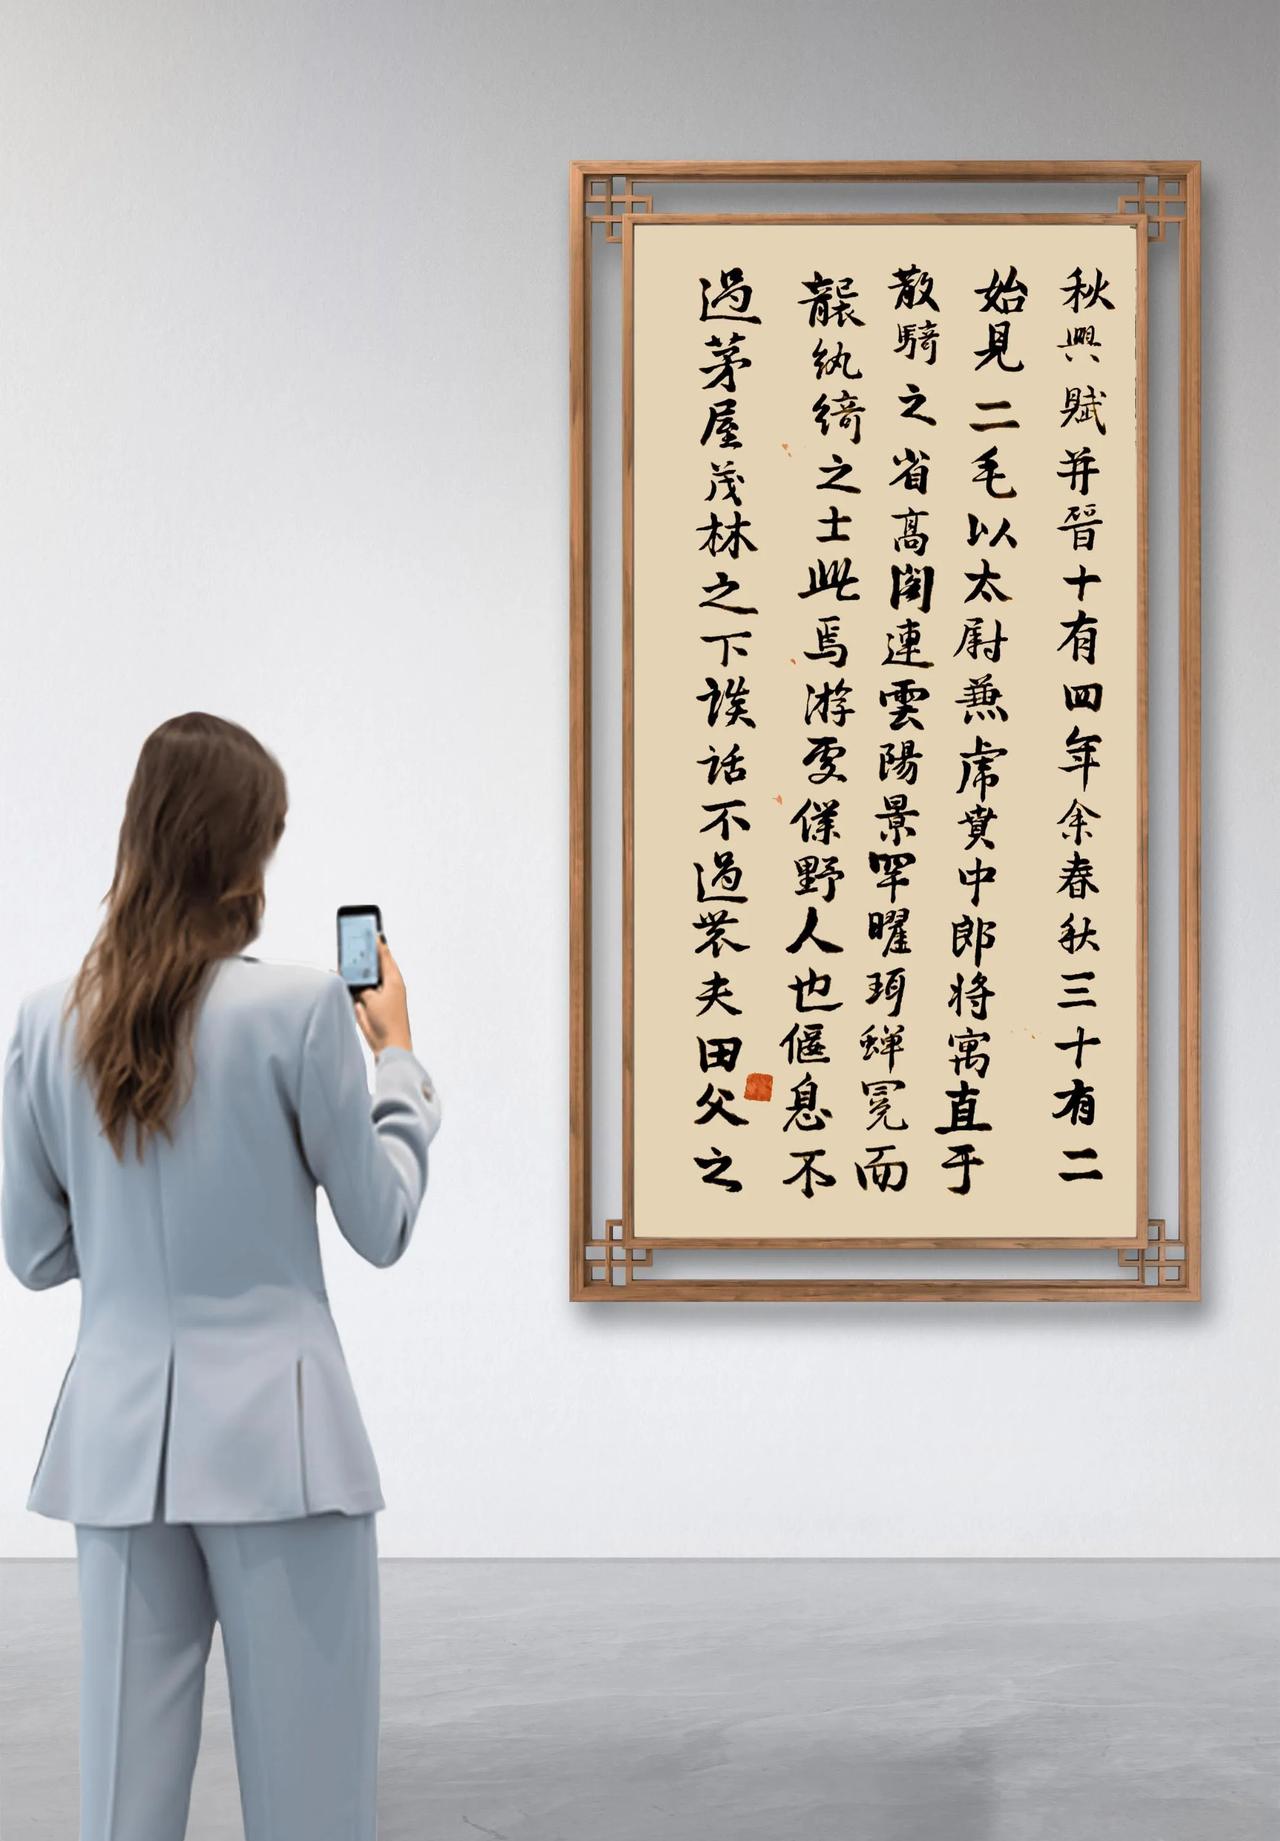 秋興賦并晉十有四年余春秋三十有二
始見二毛以太尉兼虎賁中郎將寓直于
散騎之省高閣連雲陽景罕曜珥蟬冕而
襲紈綺之士此焉游處僕野人也偃息不
過茅屋茂林之下談話不過農夫田父之